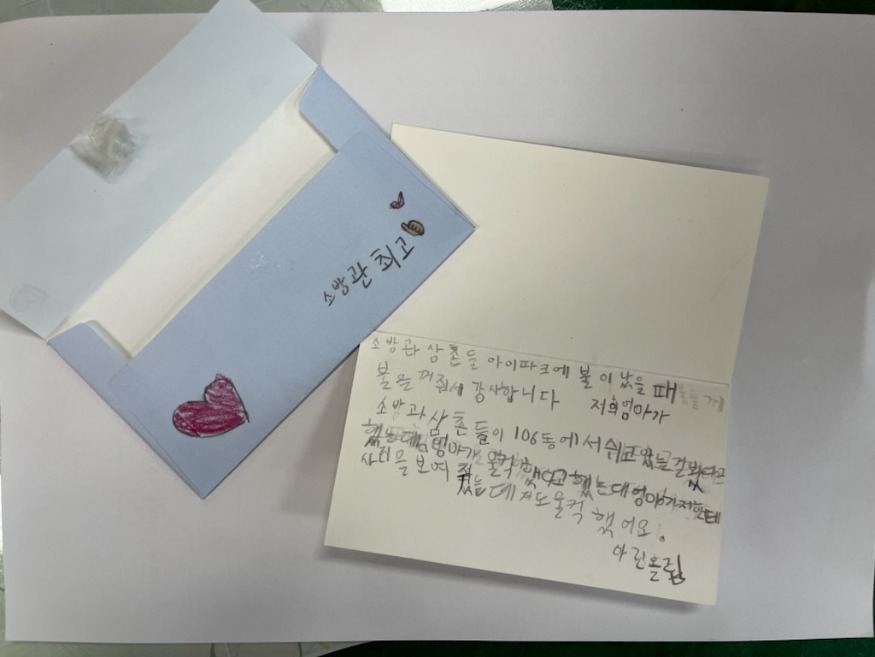 소방관 최고
소방관 삼촌들 아이파크에 불이 났을 때
불을 꺼줘서 감사합니다 저희엄마가
소방관삼촌들이 106동에서 쉬고있는걸봤다고
했는데 엄마가 울컥했다고했는데엄마가저한테
사진을 보여줬는데 저도울컥했어요!
아린올림